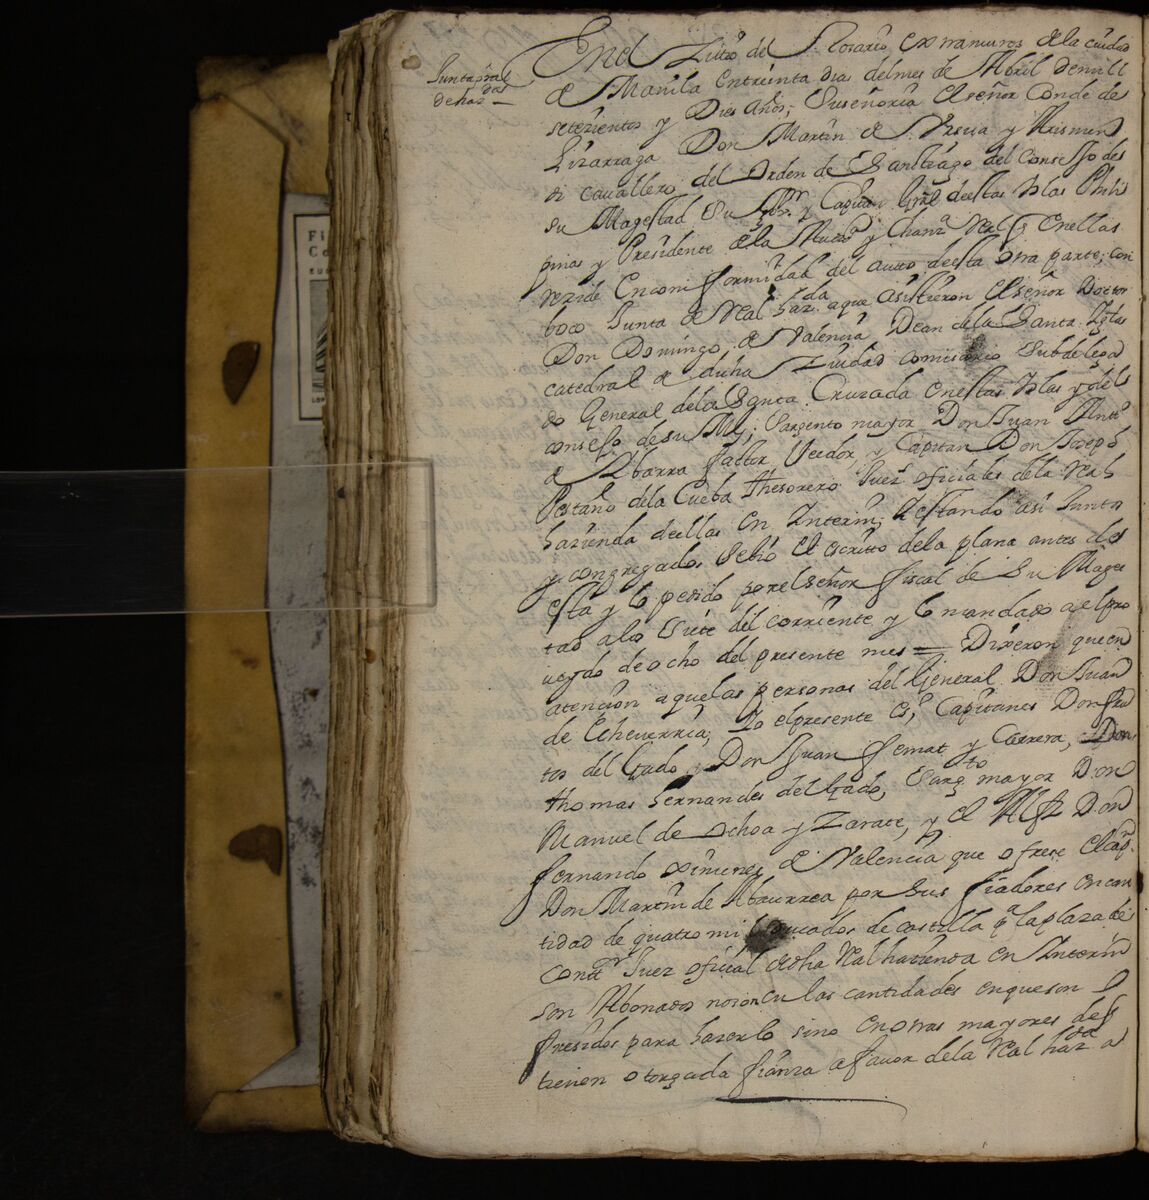 Junta gral
de haz.da
En el Sitio del Rosario extramuros de la ciudad
de Manila en treinta dias del mes de Abril de mill
setezientos y Dies años; Suseñoria el señor Conde de
Lizarraga Don Martin de Vrsua y Arismen
di cavallero del Orden de Santiago del Consejo de
su Magestad su Gov.r y Capitan Gral de estas Yslas Phili
pinas y Presidente de la Aud.a y Chanz.a Real q Enellas
rezide En conformidad del auto de esta otra parte; con
boco Junta de Real haz.da aque asistieron el señor Doctor
Don Domingo de Valencia Dean de la Santa Yglas
catedral de dicha Ziudad comisario Subdelega
do General de la Santa Cruzada en estas Yslas y del
consejo de su Mg; Sargento mayor Don Juan Ant.o
de Ybarra factor Veedor, y Capitan Don Joseph
Pestaño de la Cueba Thesorero Juez.s oficiales de la Real
hazienda de ellas en Interin; Y estando asi Juntos
y congregados se bio el escritto de la plana antes de
esta y lo pedido por el señor fiscal de Su Mages
tad a los siete del corriente y lo mandado a el pro
ueydo de ocho del presente mes = Dixeron que en
atencion aquelas personas del General Don Juan
de Echeverria; Yo el presente es.no Capitanes Don
tos del Gado, Don Juan femat y Carrera, Don
thomas hernandes del Gado, Sarg.to mayor Don
Manuel de Ochoa y Zarate, y el Alfz Don
fernando ximenes de Valencia que ofrese el cap.n
Don Martin de Abaurrea por sus fiadores en can
tidad de quatro mil Ducados de castilla p.a la plaza de
Cont.or Juez oficial de dha Real hazienda en Interin
son Abonados no solo en las cantidades en que son
fresidos para hazerlo sino en otras mayores de
tienen otorgada fianza a favor de la Real haz.da a